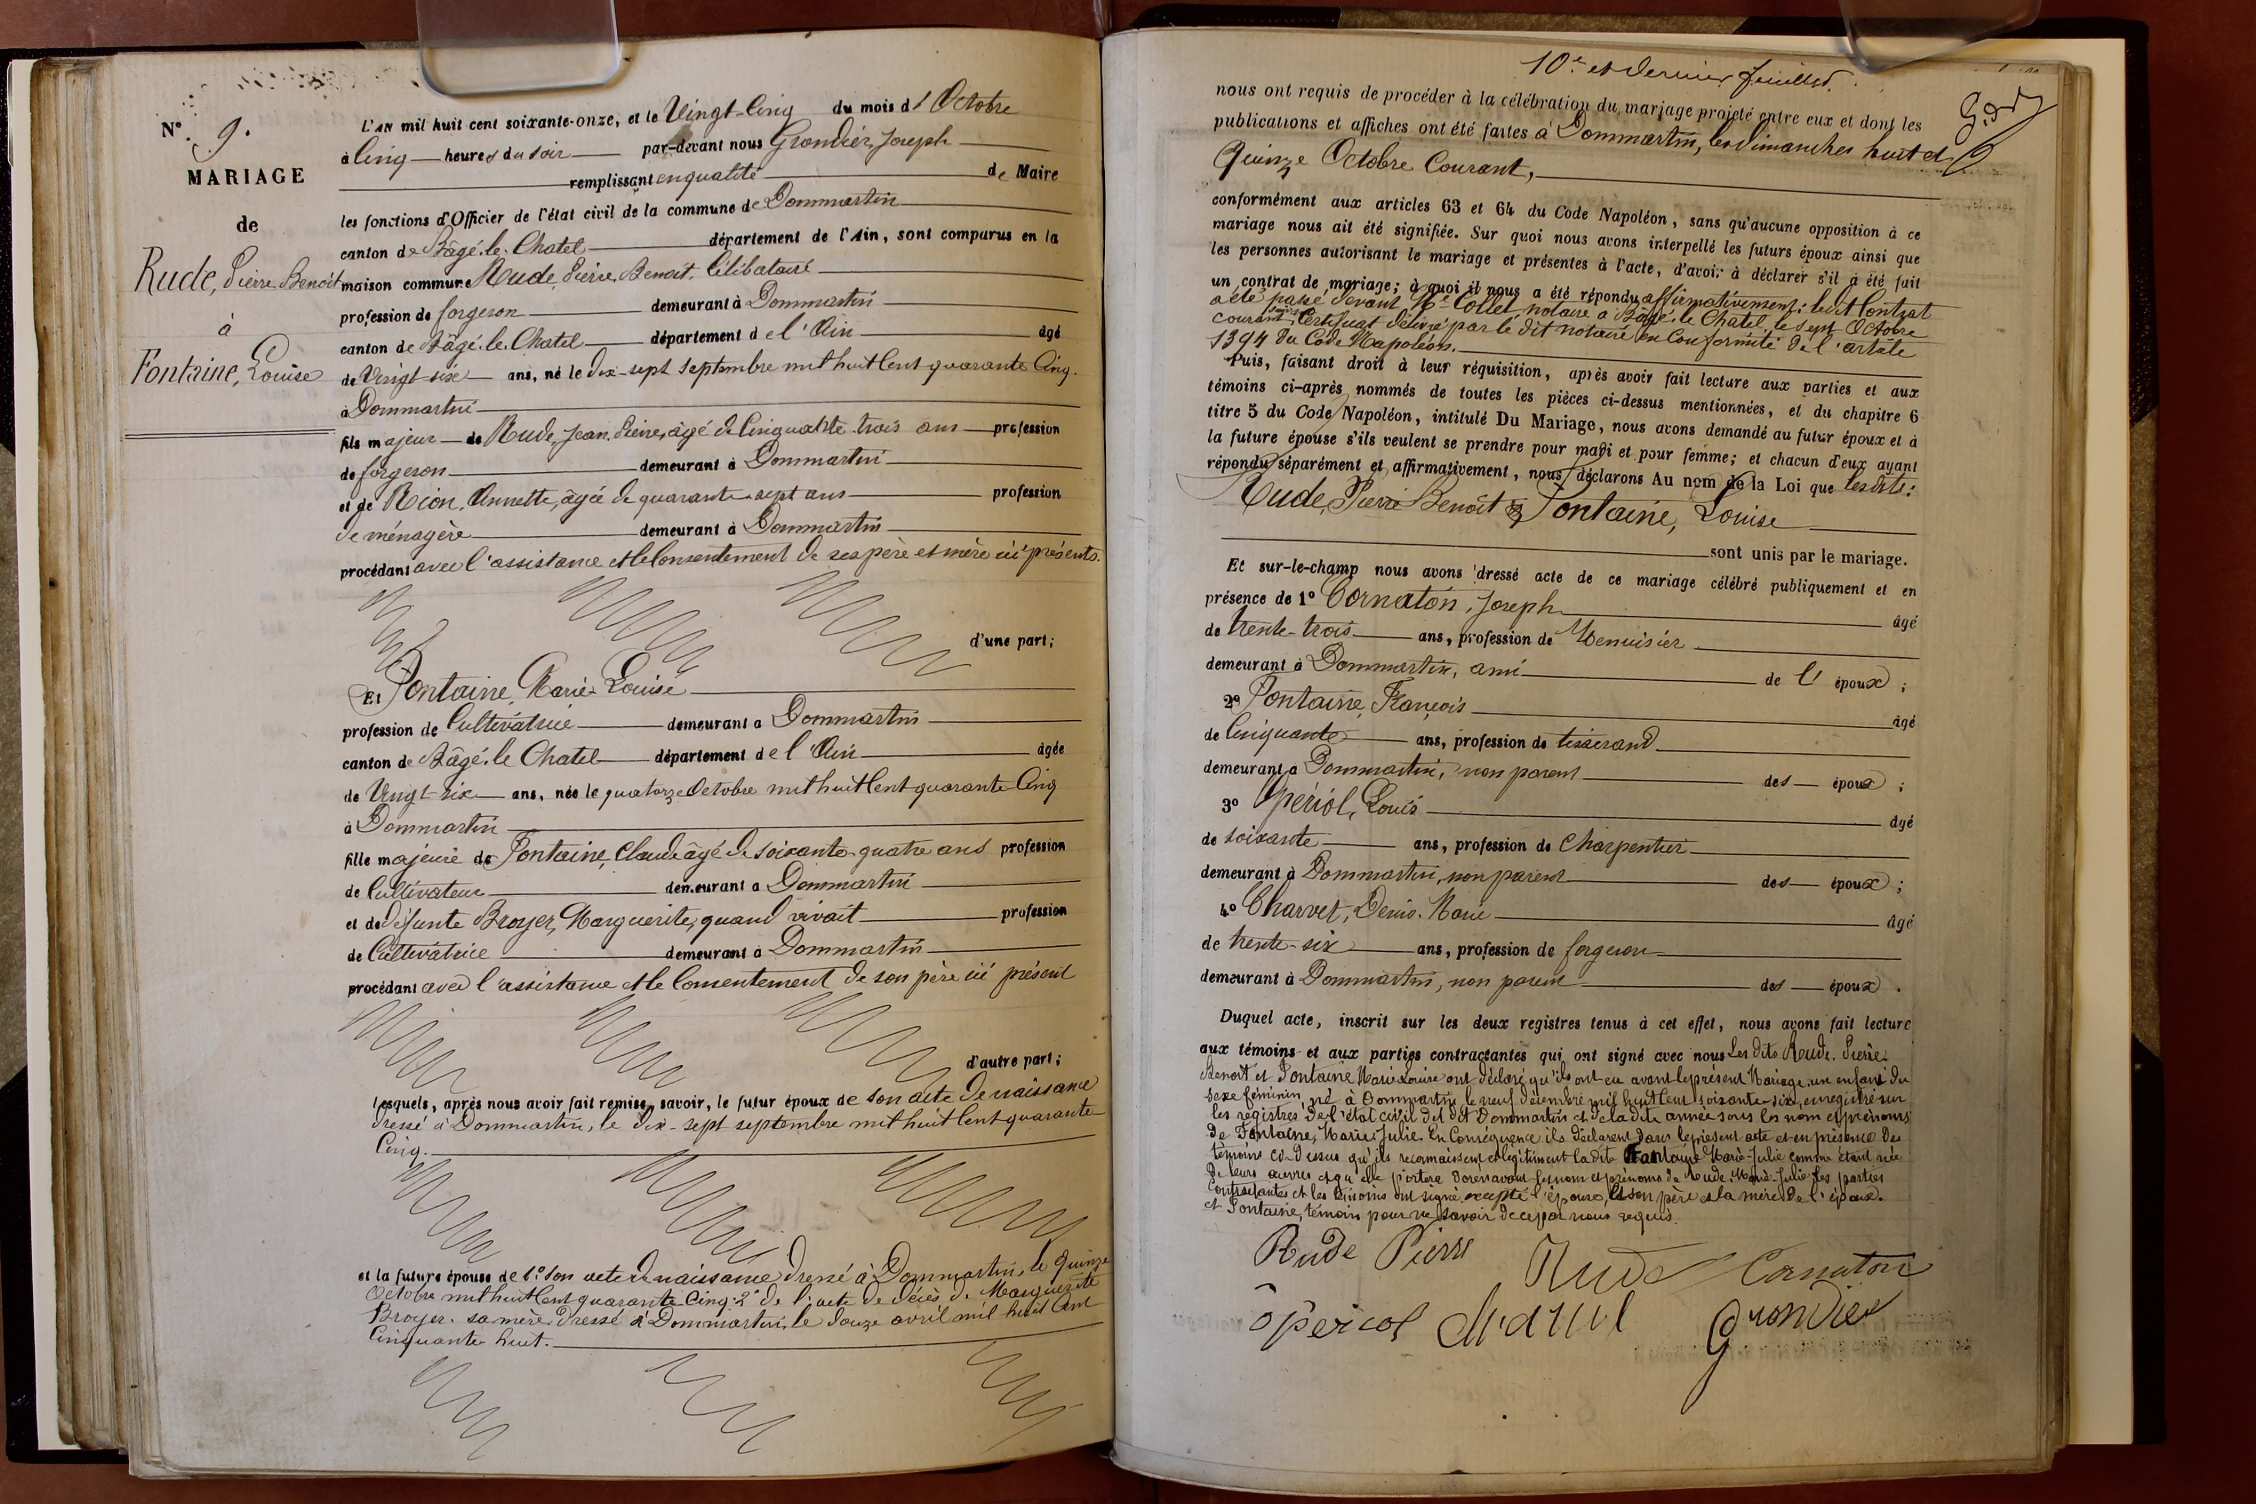 N° 9.
MARIAGE
de
Rude, Pierre Benoît
à
Fontaine, Louise
L'AN mil huit cent soixante-onze, et le Vingt-Cinq du mois d' Octobre
à Cinq heures du soir par-devant nous Grondier, Joseph
remplissant en qualité de Maire
les fonctions d'Officier de l'état civil de la commune de Dommartin
canton de Bâgé-le-Chatel département de l'Ain, sont comparus en la
maison commune Rude, Pierre Benoit, Célibataire
profession de forgeron demeurant à Dommartin
canton de Bâgé-le-Chatel département de l'Ain âgé
de Vingt-six ans, né le dix-sept septembre mil huit Cent quarante Cinq.
à Dommartin
fils majeur de Rude, Jean Pierre, âgé de Cinquante trois ans profession
de forgeron demeurant à Dommartin
et de Rion, Annette, âgée de quarante-sept ans profession
de ménagère demeurant à Dommartin
procédant avec l'assistance et le Consentement de ses père et mère ici présents.
d'une part;
Et Fontaine, Marie-Louise
profession de Cultivatrice demeurant à Dommartin
canton de Bâgé-le Chatel département de l'Ain âgée
de Vingt-six ans, née le quatorze Octobre mil huit Cent quarante Cinq
à Dommartin
fille majeure de Fontaine, Claude âgé de soixante-quatre ans profession
de Cultivateur demeurant à Dommartin
et de défunte Broyer, Marguerite, quand vivait profession
de Cultivatrice demeurant à Dommartin
procédant avec l'assistance et le Consentement de son père ici présent
d'autre part;
Lesquels, après nous avoir fait remise, savoir, le futur époux de son acte de naissance
dressé à Dommartin, le dix-sept septembre mil huit Cent quarante
Cinq.
et la future épouse de 1° son acte de naissance dressé à Dommartin, le quinze
Octobre mil huit Cent quarante Cinq: 2° de l'acte de décès de Marguerite
Broyer, sa mère dressé à Dommartin, le douze avril mil huit Cent
Cinquante huit.
10e et dernier feuillet.
nous ont requis de procéder à la célébration du mariage projeté entre eux et dont les
publications et affiches ont été faites à Dommartin, les Dimanches huit et
Quinze Octobre Courant,
conformément aux articles 63 et 64 du Code Napoléon, sans qu'aucune opposition à ce
mariage nous ait été signifiée. Sur quoi nous avons interpellé les futurs époux ainsi que
les personnes autorisant le mariage et présentes à l'acte, d'avoir à déclarer s'il a été fait
un contrat de mariage; à quoi il nous a été répondu affirmativement: ledit Contrat
a été passé devant Me Collet notaire à Bâgé-le-Chatel, le sept Octobre
courant, suivant Certificat délivré par le dit notaire en Conformité de l'article
1394 du Code Napoléon.
Puis, faisant droit à leur réquisition, après avoir fait lecture aux parties et aux
témoins ci-après nommés de toutes les pièces ci-dessus mentionnées, et du chapitre 6
titre 5 du Code Napoléon, intitulé Du Mariage, nous avons demandé au futur époux et à
la future épouse s'ils veulent se prendre pour mari et pour femme; et chacun d'eux ayant
répondu séparément et affirmativement, nous déclarons Au nom de la Loi que lesdits:
Rude, Pierre Benoît & Fontaine, Louise
sont unis par le mariage.
Et sur-le-champ nous avons dressé acte de ce mariage célébré publiquement et en
présence de 1° Cornaton, Joseph âgé
de trente-trois ans, profession de Menuisier
demeurant à Dommartin, ami de l' époux;
2° Fontaine, François âgé
de Cinquante ans, profession de tisserand
demeurant à Dommartin, non parent des époux;
3° Opériol, Louis âgé
de soixante ans, profession de Charpentier
demeurant à Dommartin, non parent des époux;
4° Charvet, Denis-Marie âgé
de trente-six ans, profession de forgeron
demeurant à Dommartin, non parent des époux.
Duquel acte, inscrit sur les deux registres tenus à cet effet, nous avons fait lecture
aux témoins et aux parties contractantes qui ont signé avec nous Les dits Rude, Pierre
Benoît et Fontaine Marie Louise ont déclaré qu'ils ont eu avant le présent Mariage, un enfant du
sexe féminin, né à Dommartin le neuf décembre mil huit Cent soixante-six, enregistré sur
les registres de l'état civil du dit Dommartin et de la dite année sous les nom et prénoms
de Fontaine, Marie-Julie. En Conséquence ils déclarent dans le présent acte et en présence des
témoins ci-dessus qu'ils reconnaissent et légitiment la dite Fontaine Marie-Julie comme étant née
de leurs œuvres et qu'elle portera dorénavant les nom et prénoms de Rude, Marie-Julie. Les parties
Contractantes et les témoins ont signé, excepté l'épouse, et son père et la mère de l'époux.
et Fontaine, témoin pour ne savoir de ce par nous requis.
Rude Pierre Rude Cornaton
opériol Grondier